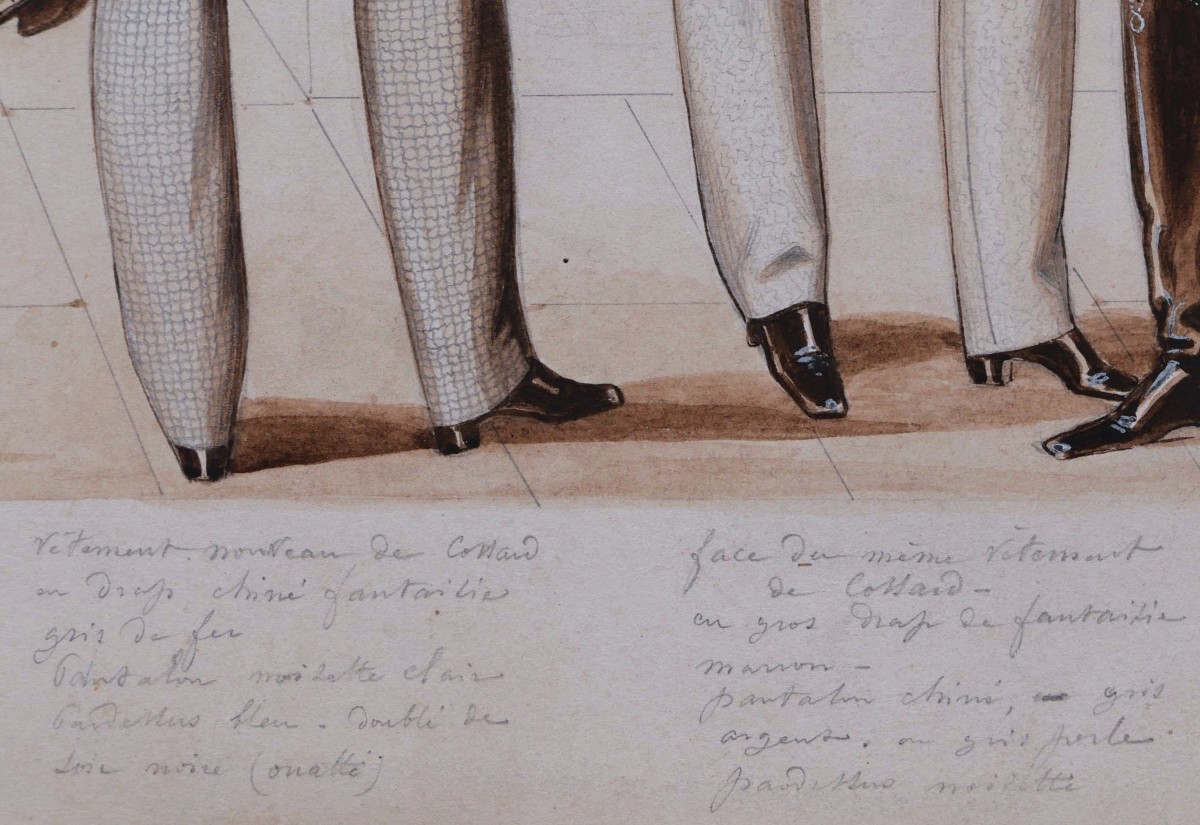 Vêtement nouveau de Collard
en drap chiné fantaisie
gris de fer
Pantalon noisette clair
Pardessus bleu - doublé de
soie noire (ouatté)
face du même Vêtement
de Collard -
en gros drap de fantaisie
marron -
pantalon chiné, - gris
argent. ou gris perle.
pardessus noisette